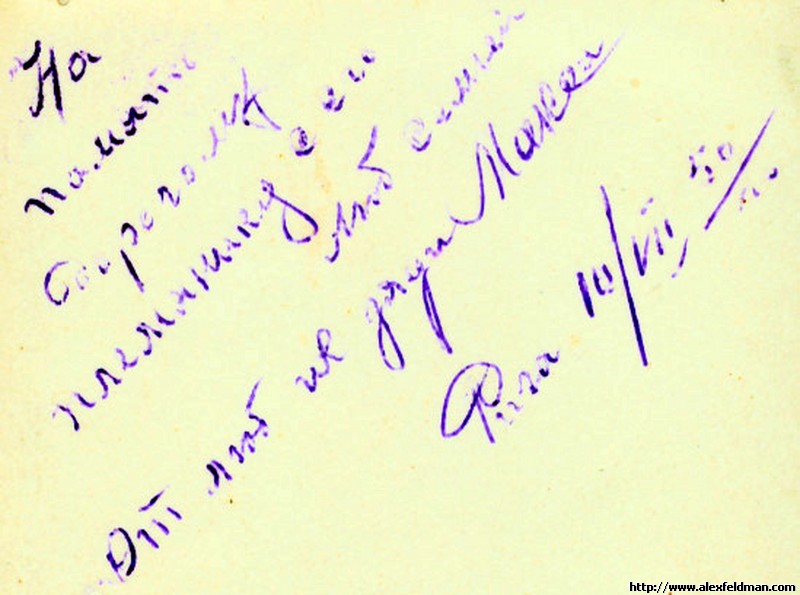 На
память
дорогому
племянику с его
люб семьей
От люб дяди Макса
Рига 10/VII 50
http://www.alexfeldman.com